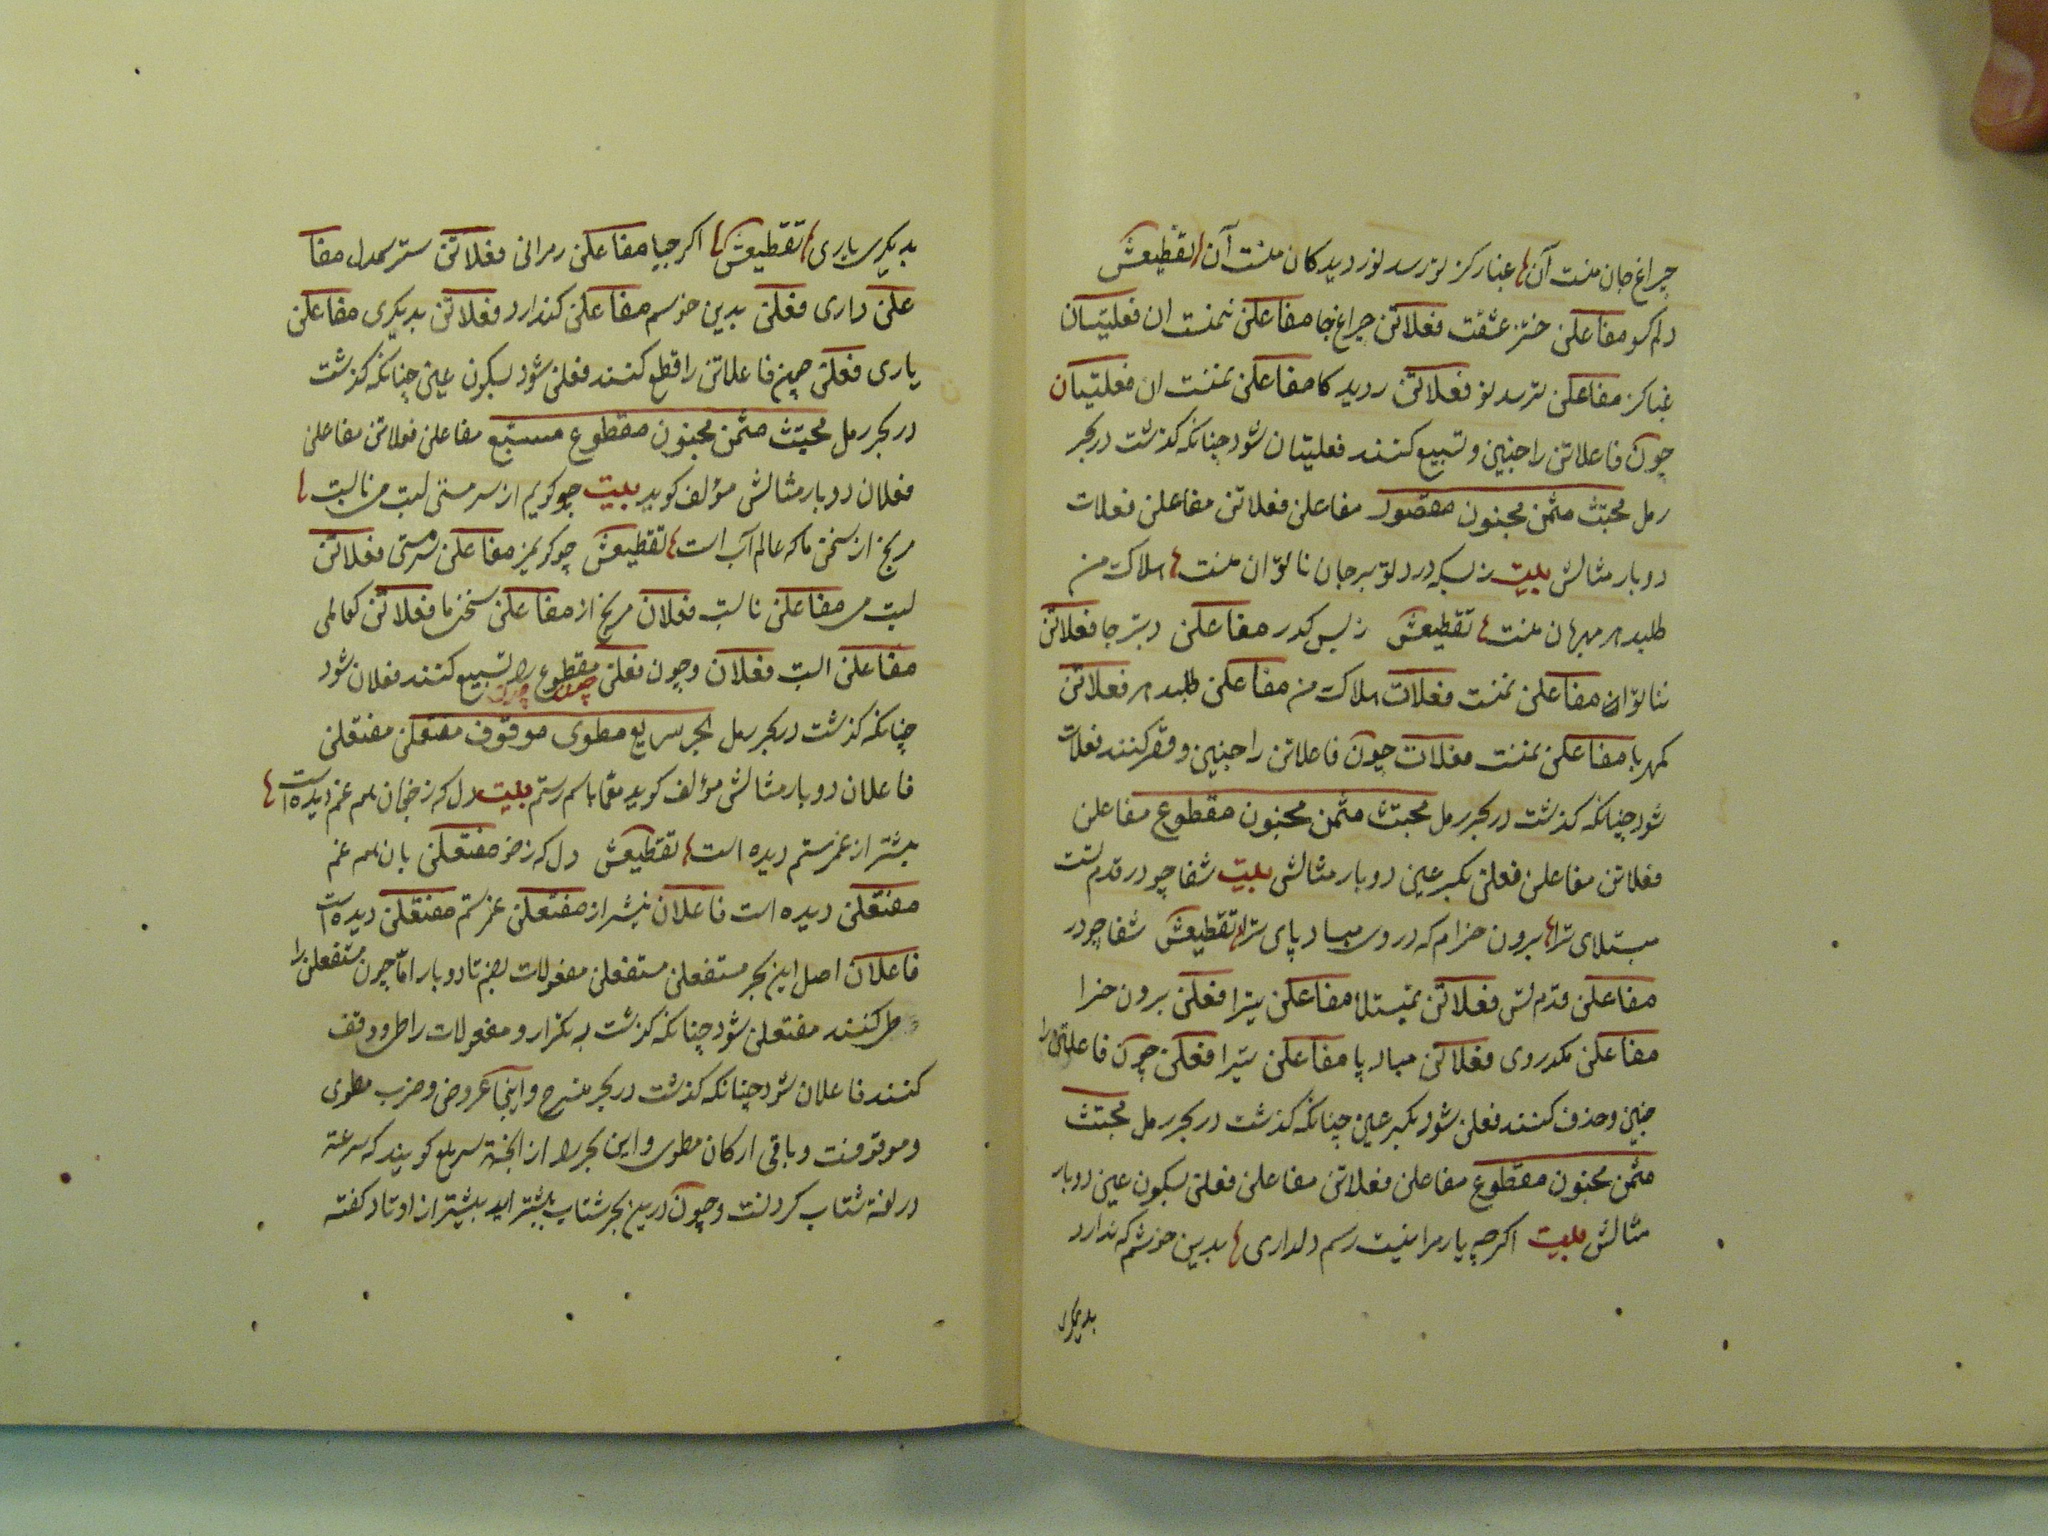 چراغ جان منت آن غبار کز تو رسد نور دیدکان منت آن تقطیعش
دلم کو مفاعلن عشقت فعلاتن چراغ جا مفاعلن نمنت ان فعلیتان
غباکز مفاعلن ترسد نو فعلاتن ردید کا مفاعلن نمنت ان فعلیتان
چون فاعلاتن را خبن و تسبیغ کنند فعلیتان شود چنانکه کذشت در بحر
رمل مجتث مثمن مخبون مقصور مفاعلن فعلاتن مفاعلن فعلات
دوبار مثالش بیت ز بسکه درد تو بر جان ناتوان منست هلاک من
طلبد هر مهربان منست تقطیعش ز بس کدر مفاعلن دبتر جا فعلاتن
نناتوان مفاعلن نمنت فعلات هلاک من مفاعلن طلبد هر فعلاتن
کمهربا مفاعلن نمنت فعلات چون فاعلاتن را خبن و قصر کنند فعلات
شود چنانکه کذشت در بحر رمل مجتث مثمن مخبون مقطوع مفاعلن
فعلاتن مفاعلن فعلن بکسر عین دوبار مثالش بیت شفا چو در قدم تست
مبتلای ترا برون خرام که در وی مباد پای ترا تقطیعش شفا چو در
مفاعلن قدم تس فعلاتن تمبتلا مفاعلن یترا فعلن برون خرا
مفاعلن مکدروی فعلاتن مباد پا مفاعلن یترا فعلن چون فاعلاتن را
خبن و حذف کنند فعلن شود بکسر عین چنانکه کذشت در بحر رمل مجتث
مثمن مخبون مقطوع مفاعلن فعلاتن مفاعلن فعلن بسکون عین دوبار
مثالش بیت اکرچه یار مرا نیست رسم دلداری بدین خوشم که ندارد
بدیکری
بدیکری یاری تقطیعش اکرچیا مفاعلن رمرانی فعلاتن مفا
علن داری فعلن بدین خوشم مفاعلن کندارد فعلاتن بدیکری مفاعلن
یاری فعلن چون فاعلاتن را قطع کنند فعلن شود بسکون عین چنانکه کذشت
در بحر رمل مجتث مثمن مخبون مقطوع مسبغ مفاعلن فعلاتن مفاعلن
فعلان دوبار مثالش مؤلف کوید بیت چو کویم از سر مستی لبت من نالبت
مرنج از سخن ما که عالم آب است تقطیعش چو کویمز مفاعلن سرمستی فعلاتن
لبت من مفاعلن نالب فعلان مرنج از مفاعلن سخن ما فعلاتن کعالمی
مفاعلن الب فعلان و چون فعلن مقطوع را تسبیغ کنند فعلان شود
چنانکه کذشت در بحر رمل بحر سریع مطوی موقوف مفتعلن مفتعلن
فاعلان دوبار مثالش مؤلف کوید معما باسم رستم بیت دل که ز خوبان همه غم دیده است
بیشتر از عمر ستم دیده است تقطیعش دل که زخو مفتعلن بان همه غم
مفتعلن دیده است فاعلان بیشتر از مفتعلن عمر ستم مفتعلن دیده است
فاعلان اصل این بحر مستفعلن مستفعلن مفعولات بضم تا دوبار اما چون مستفعلن را
طی کنند مفتعلن شود چنانکه کذشت به تکرار و مفعولات را طی و وقف
کنند فاعلان شود چنانکه کذشت در بحر منسرح و اینجا عروض و ضرب مطوی
و موقوفست و باقی ارکان مطوی و این بحر را از انجهة سریع کویند که سرعة
در لغة شتاب کردنست و چون درین بحر شتاب بیشتر اید بیشتر از اوتاد کفته